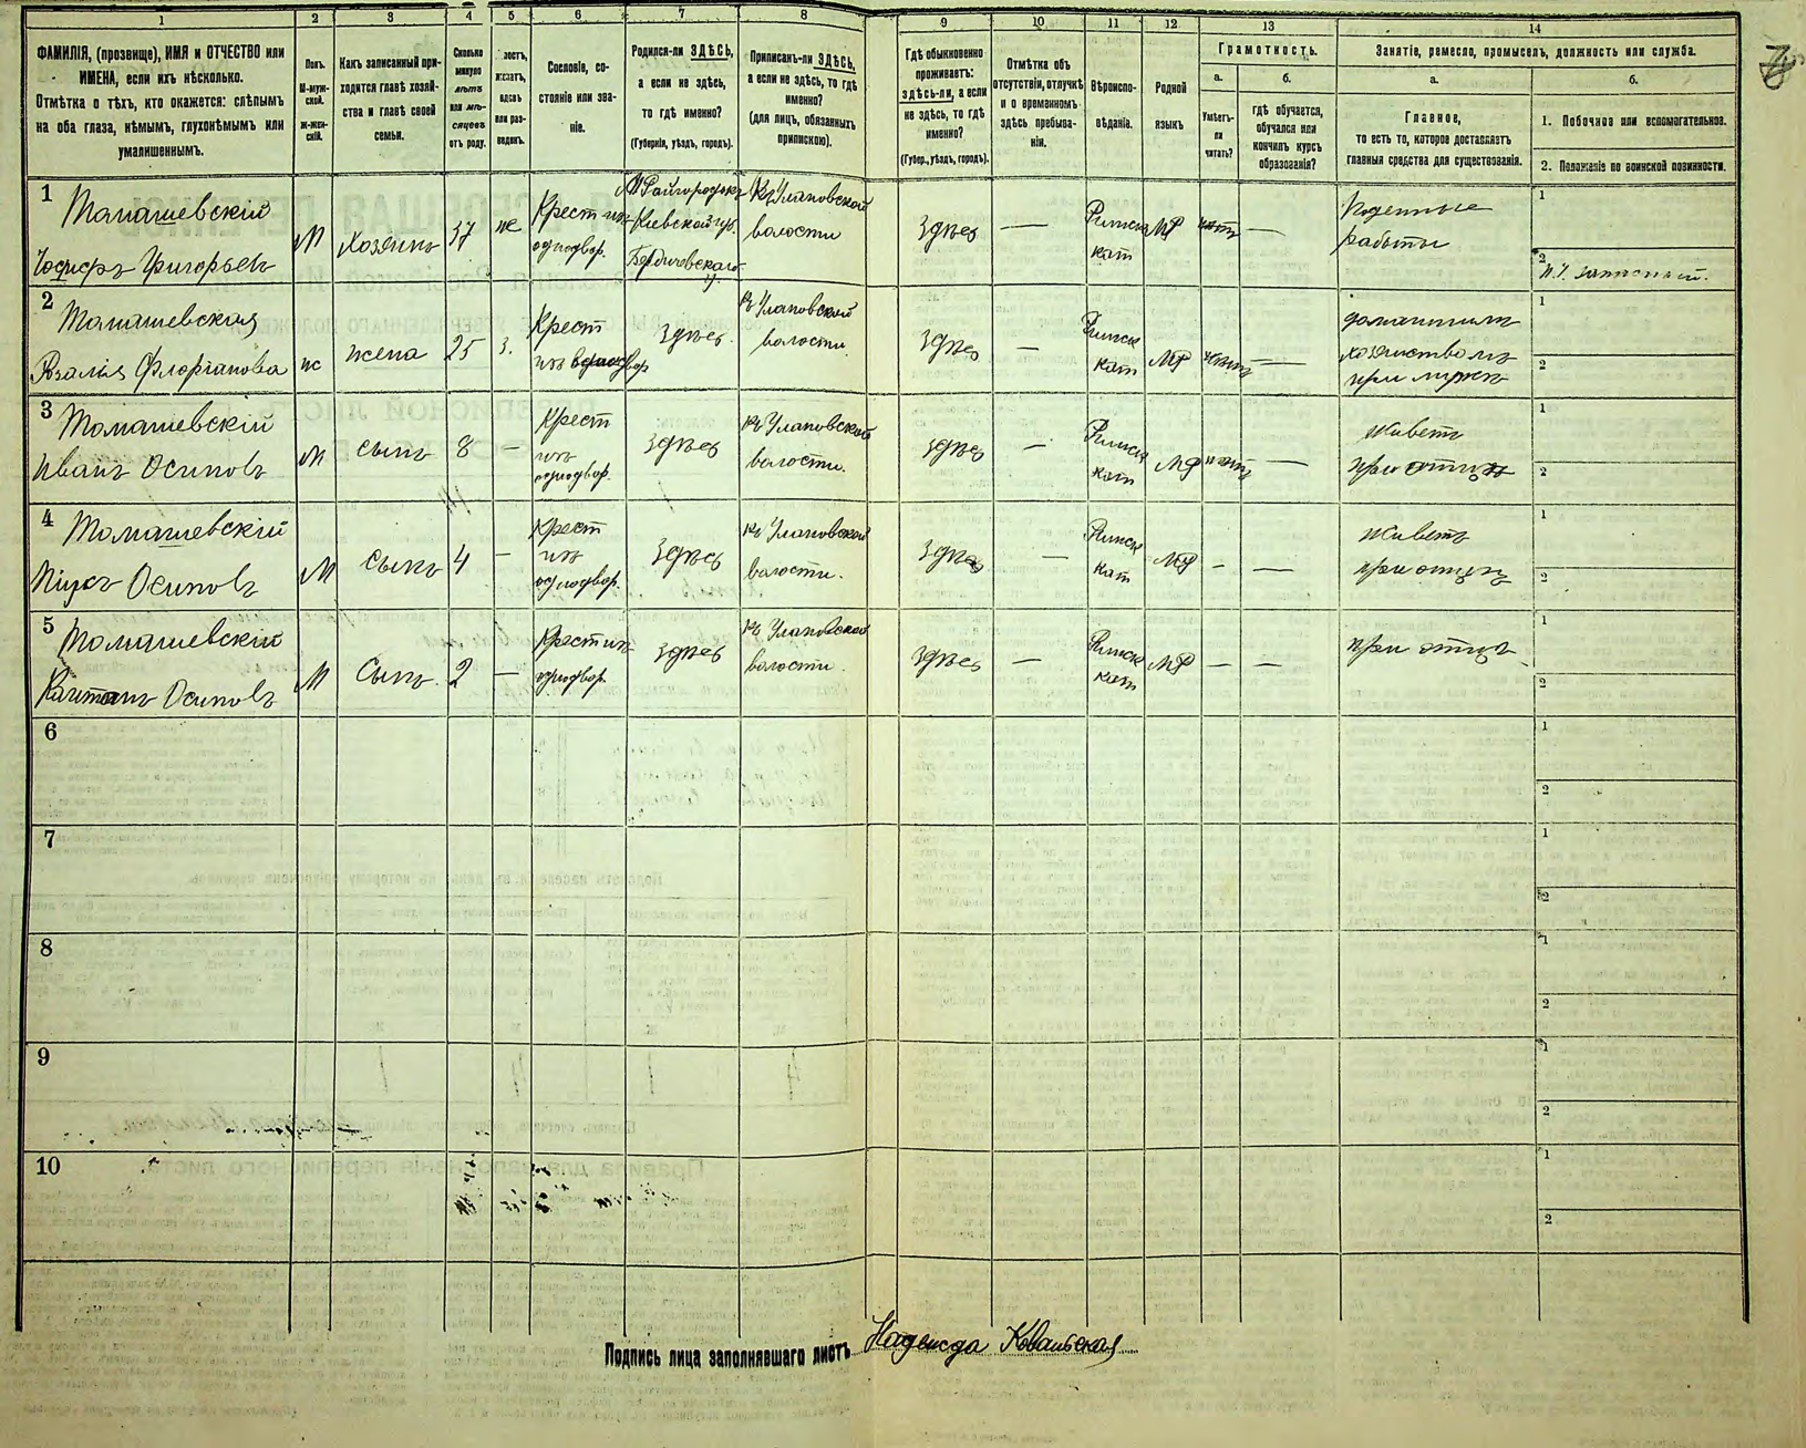 1 2 3 4 5 6 7 8 9 10 11 12 13 14
ФАМИЛІЯ, (прозвище), ИМЯ и ОТЧЕСТВО или
ИМЕНА, если ихъ нѣсколько.
Отмѣтка о тѣхъ, кто окажется: слѣпымъ
на оба глаза, нѣмымъ, глухонѣмымъ или
умалишеннымъ.
Полъ.
М-муж-
ской.
Ж-жен-
скій.
Какъ записанный при-
ходится главѣ хозяй-
ства и главѣ своей
семьи.
Сколько
минуло
лѣтъ
или мѣ-
сяцевъ
отъ роду.
лостъ,
женатъ,
вдовъ
или раз-
веденъ.
Сословіе, со-
стояніе или зва-
ніе.
Родился-ли ЗДѢСЬ,
а если не здѣсь,
то гдѣ именно?
(Губернія, уѣздъ, городъ).
Приписанъ-ли ЗДѢСЬ,
а если не здѣсь, то гдѣ
именно?
(для лицъ, обязанныхъ
припискою).
Гдѣ обыкновенно
проживаетъ:
здѣсь-ли, а если
не здѣсь, то гдѣ
именно?
(Губер., уѣздъ, городъ).
Отмѣтка объ
отсутствіи, отлучкѣ
и о временномъ
здѣсь пребыва-
ніи.
Вѣроиспо-
вѣданіе.
Родной
языкъ
Грамотность.
а.
Умѣетъ-
ли
читать?
б.
гдѣ обучается,
обучался или
кончилъ курсъ
образованія?
Занятіе, ремесло, промыселъ, должность или служба.
а.
Главное,
то есть то, которое доставляетъ
главныя средства для существованія.
б.
1. Побочное или вспомогательное.
2. Положеніе по воинской повинности.
1
Томашевскій
Іосифъ Григорьевъ
М
Хозяинъ
37
же
Крест изъ
однодвор.
М Райгородокъ
Кіевской губ.
Бердичевскаго
у.
Къ Улановской
волости
здѣсь
—
Римск
кат
МР
нѣтъ
—
Поденные
работы
1
2
2
Томашевская
Розалія Флоріанова
ж
жена
25
з.
Крест
изъ однодвор
здѣсь.
Къ Улановской
волости
здѣсь
—
Римск
кат
МР
нѣтъ
—
домашнимъ
хозяйствомъ
при мужѣ
1
2
3
Томашевскій
Иванъ Осиповъ
М
сынъ
8
—
Крест
изъ
однодвор.
здѣсь
Къ Улановской
волости.
здѣсь
—
Римск
кат
МР
нѣтъ
—
живетъ
при отцѣ
1
2
4
Томашевскій
Піусъ Осиповъ
М
сынъ
4
—
Крест
изъ
однодвор.
здѣсь
Къ Улановской
волости.
здѣсь
—
Римск
кат
МР
—
—
живетъ
при отцѣ
1
2
5
Томашевскій
Каетанъ Осиповъ
М
Сынъ.
2
—
Крест изъ
однодвор.
здѣсь
Къ Улановской
волости.
здѣсь
—
Римск
кат
МР
—
—
при отцѣ
1
2
6
1
2
7
1
2
8
1
2
9
1
2
10
1
2
Подпись лица заполнявшаго листъ Надежда Ковальская